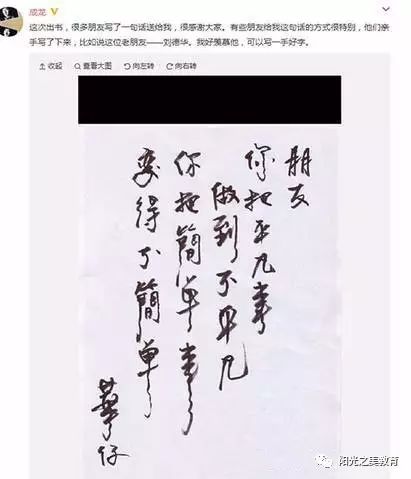 成龙
这次出书，很多朋友写了一句话送给我，很感谢大家。有些朋友给我这句话的方式很特别，他们亲
手写了下来，比如说这位老朋友——刘德华。我好羡慕他，可以写一手好字。
收起
查看大图
向左转
向右转
朋友
你把平凡事
做到不平凡
你把簡單事
變得不簡單
華仔
阳光之美教育